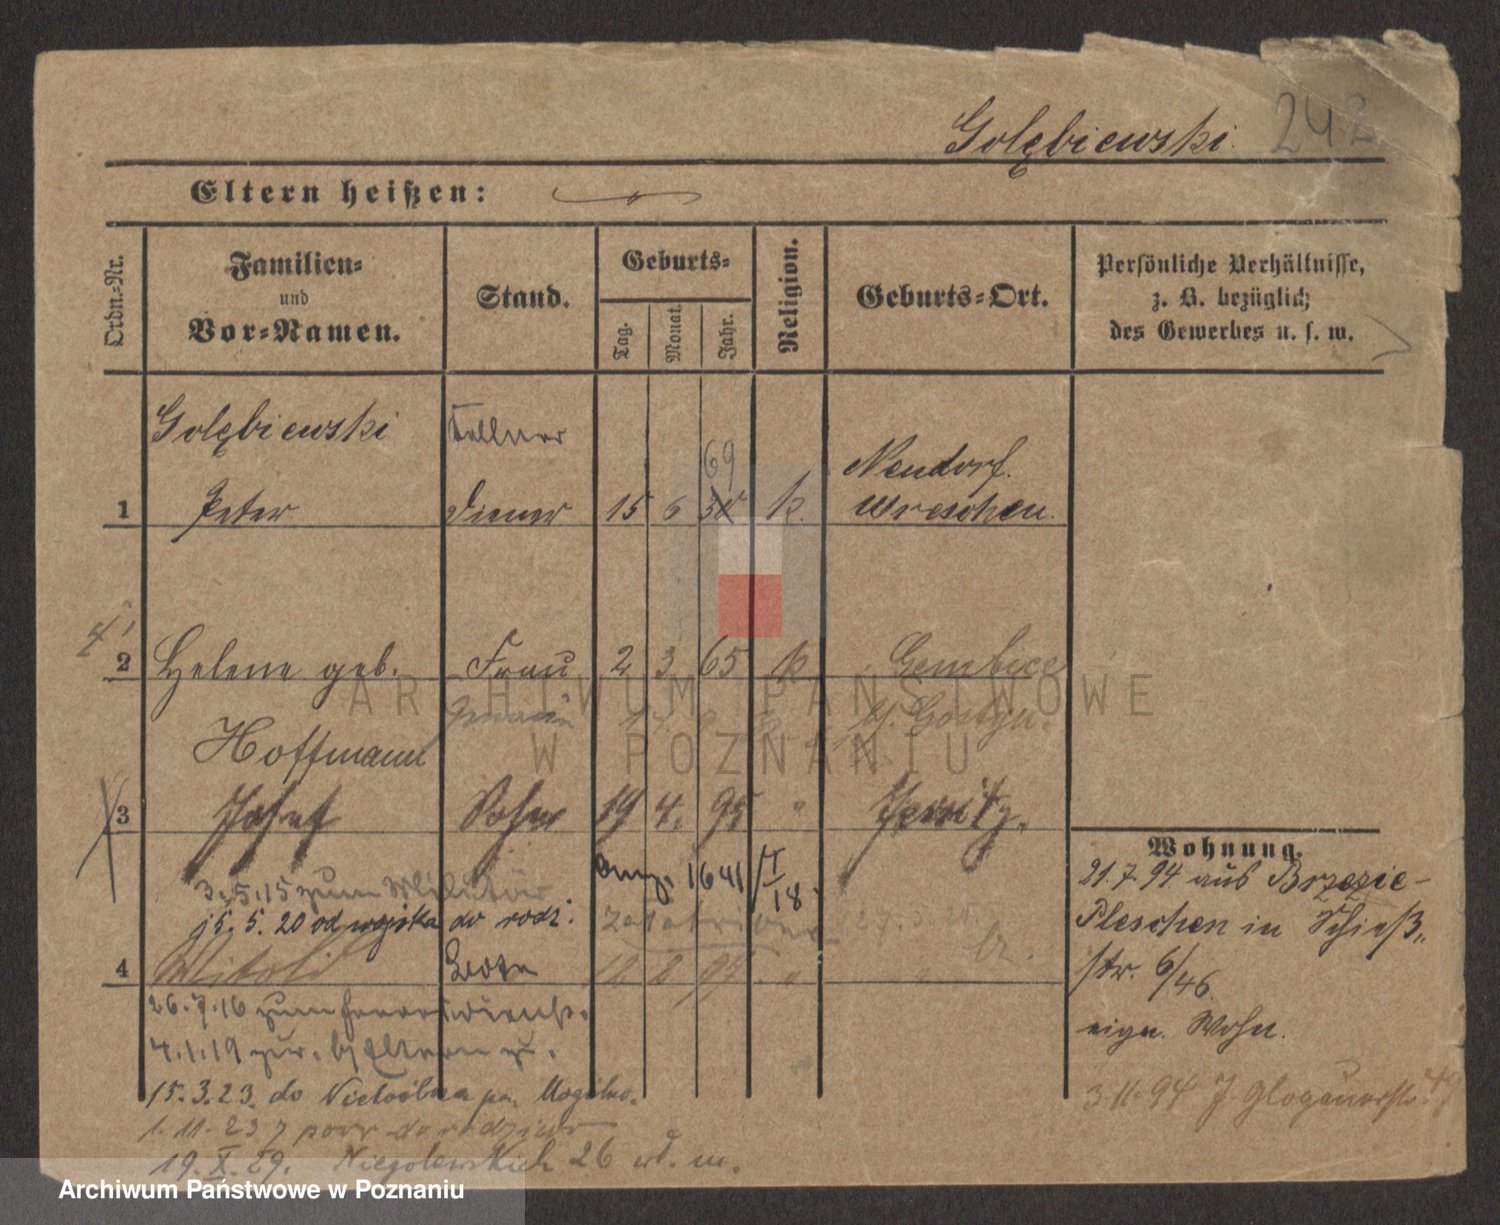 Golębiewski. 242
Eltern heißen:
Ordn.-Nr.
Familien-
und
Vor-Namen.
Stand.
Geburts-
Tag.
Monat.
Jahr.
Religion.
Geburts-Ort.
Persönliche Verhältnisse,
z. B. bezüglich
des Gewerbes u. s. w.
Golębiewski Kellner
69 Neudorf.
1 Peter Diener 15 6 k. Wreschen.
2 Helene geb. Frau 2 3 65 k Gembice
Gostyn.
Hoffmann
3 Josef Sohn 19 4. 95 " Jersitz.
Wohnung.
3.5.15 zum Militär
15.5.20 od wojska do rodz.
21.7.94 aus Brzezie-
Pleschen in Schieß-
str. 6/46.
eign. Wohn.
4 Witold
26.7.16 zum Heeresdienst.
4.1.19 zur. Eltern
15.3.23. do Mogilno.
1.11.23 z powr do rodziców
19.X.29. Niegolewskich 26 m.
3.11.94 J. Glogauerstr.
ARCHIWUM PAŃSTWOWE
W POZNANIU
Archiwum Państwowe w Poznaniu